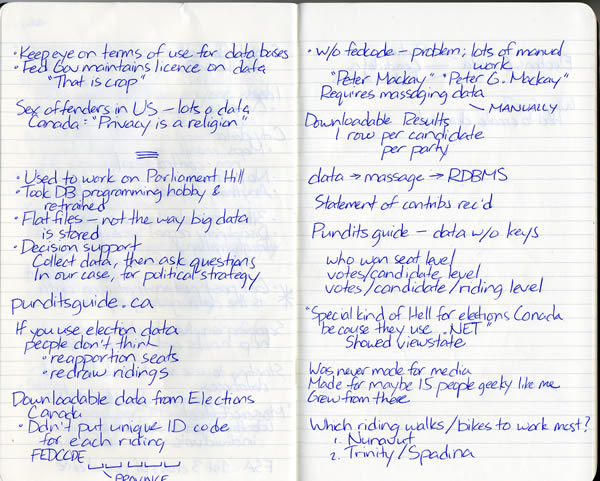 • Keep eye on terms of use for data bases
• Fed Gov maintains licence on data
"That is crap"
Sex offenders in US – lots o data
Canada: "Privacy is a religion"
• Used to work on Parliament Hill
• Took DB programming hobby &
retrained
• Flat files – not the way big data
is stored
• Decision support
Collect data, then ask questions
In our case, for political strategy
punditsguide.ca
If you use election data
people don't think
• reapportion seats
• redraw ridings
Downloadable data from Elections
Canada
• Didn't put unique ID code
for each riding
FEDCODE
PROVINCE
• w/o fedcode – problem; lots of manual
work
"Peter Mackay" "Peter G. Mackay"
Requires massaging data
MANUALLY
Downloadable Results
1 row per candidate
per party
data → massage → RDBMS
Statement of contribs rec'd
Pundits guide – data w/o keys
who won seat level
votes/candidate level
votes/candidate/riding level
"Special kind of Hell for elections Canada
because they use .NET"
Showed viewstate
Was never made for media
Made for maybe 15 people geeky like me
Grew from there
Which riding walks/bikes to work most?
1. Nunavut
2. Trinity/Spadina